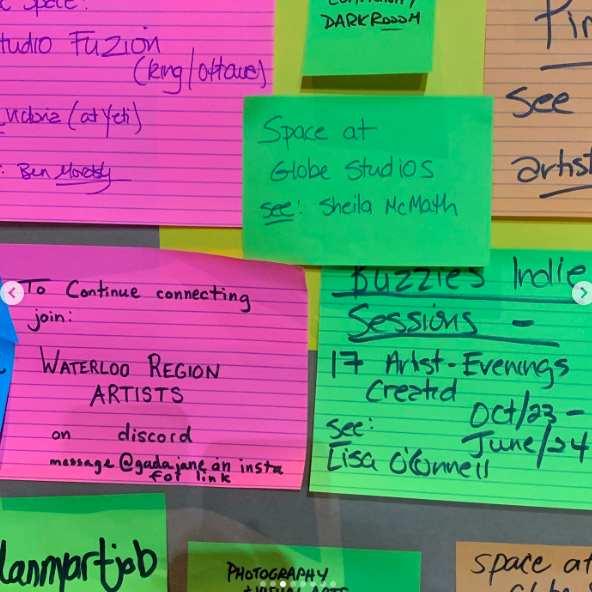 Space:
Studio Fuzion
(King/Ottawa)
(at Yeti)
: Ben
DARKROOOM
Space at
Globe Studios
see: Sheila McMath
see
artist
To Continue connecting
join:
WATERLOO REGION
ARTISTS
on discord
message @gadajane on insta
for link
Buzzies Indie
Sessions -
17 Artst-Evenings
Created
Oct/23 -
June/24
see:
Lisa O'Connell
lanmyartjob
PHOTOGRAPHY
space at